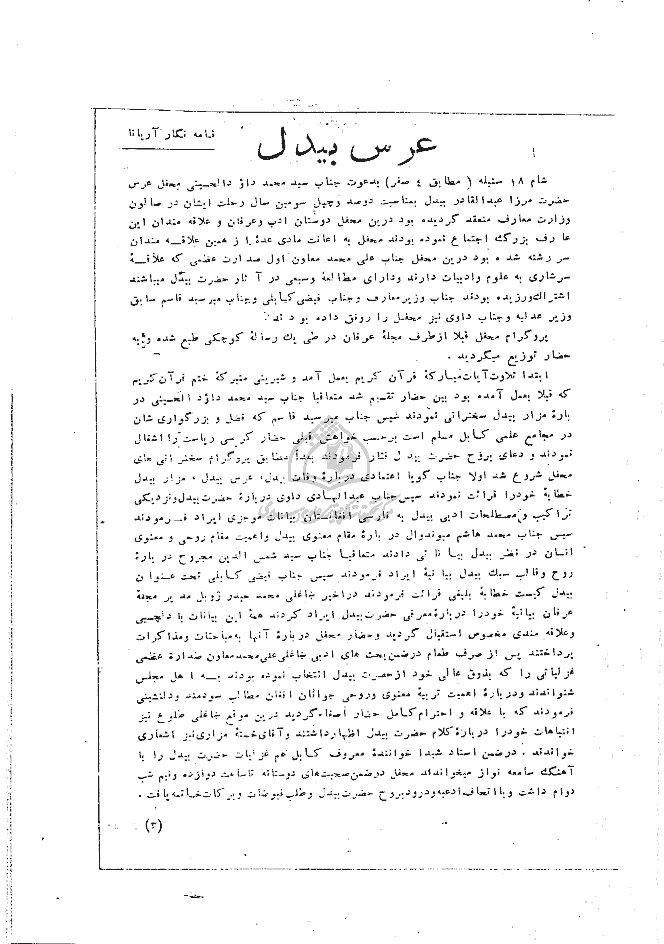 نامه نگار آریانا
عرس بیدل
شام ۱۸ سنبله ( مطابق ٤ صفر) بدعوت جناب سید محمد داؤ دالحسینی محفل عرس
حضرت مرزا عبدالقادر بیدل بمناسبت دوصد وچهل سومین سال رحلت ایشان در صالون
وزارت معارف منعقد گردیده بود درین محفل دوستان ادب وعرفان و علاقه مندان این
عارف بزرگ اجتماع نموده بودند محفل به اعانت مادی عدۀ از همین علاقه مندان
سر رشته شده بود درین محفل جناب علی محمد معاون اول صدارت عظمی که علاقۀ
سرشاری به علوم وادبیات دارند ودارای مطالعۀ وسیعی در آ ثار حضرت بیدل میباشند
اشتراك ورزیده بودند جناب وزیر معارف وجناب فیضی کابلی وجناب میرسید قاسم سابق
وزیر عدلیه وجناب داوی نیز محفل را رونق داده بودند
پروگرام محفل قبلا ازطرف مجلۀ عرفان در طی یك رسالۀ كوچكی طبع شده وبه
حضار توزیع میگردید .
ابتدا تلاوت آیات مبارکۀ قرآن کریم بعمل آمد و شیرینی متبرکۀ ختم قرآن کریم
که قبلا بعمل آمده بود بین حضار تقسیم شد متعاقبا جناب سید محمد داؤد الحسینی در
بارۀ مزار بیدل سخنرانی نمودند سپس جناب میرسید قاسم که فضل و بزرگواری شان
در مجامع علمی کابل مسلم است برحسب خواهش قبلی حضار کرسی ریاست را اشغال
نمودند و دعای بروح حضرت بیدل نثار فرمودند بعداً مطابق پروگرام سخنرانی های
محفل شروع شد اولا جناب گویا اعتمادی دربارۀ وفات بیدل، عرس بیدل ، مزار بیدل
خطابۀ خودرا قرائت نمودند سپس جناب عبدالهادی داوی دربارۀ حضرت بیدل ونزدیکی
تراکیب ومصطلحات ادبی بیدل به فارسی افغانستان بیانات موجزی ایراد فرمودند
سپس جناب محمد هاشم میوندوال در بارۀ مقام معنوی بیدل واهمیت مقام روحی و معنوی
انسان در نظر بیدل بیا نا تی دادند متعاقباً جناب سید شمس الدین مجروح در بارۀ
روح وقالب سبك بیدل بیا نیۀ ایراد فرمودند سپس جناب فیضی کابلی تحت عنوان
بیدل کیست خطابۀ بلیغی قرائت فرمودند دراخیر ښاغلی محمد حیدر ژوبل مدیر مجلۀ
عرفان بیانیۀ خودرا دربارۀ معرفی حضرت بیدل ایراد کردند همۀ این بیانات با دلچسپی
وعلاقه مندی مخصوص استقبال گردید وحضار محفل دربارۀ آنها به مباحثات ومذاکرات
پرداختند پس از صرف طعام درضمن بحث های ادبی ښاغلی علی محمد معاون صدارة عظمی
غزلیاتی را که بذوق عالی خود ازحضرت بیدل انتخاب نموده بودند به اهل مجلس
شنواندند ودربارۀ اهمیت تربیۀ معنوی وروحی جوانان افغان مطالب سودمند ودلنشینی
فرمودند که با علاقه و احترام کامل حضار اصغاء گردید درین موقع ښاغلی طلوع نیز
انتباهات خودرا دربارۀ کلام حضرت بیدل اظهارداشتند وآقای خستۀ مزاری نیز اشعاری
خواندند . درضمن استاد شیدا خوانندۀ معروف کابل هم غزلیات حضرت بیدل را با
آهنگ سامعه نواز میخواندند محفل درضمن صحبت های دوستانه تاساعت دوازده ونیم شب
دوام داشت وبا اتحاف ادعیه ودرود بروح حضرت بیدل وطلب فیوضات وبرکات خاتمه یافت .
(۳)